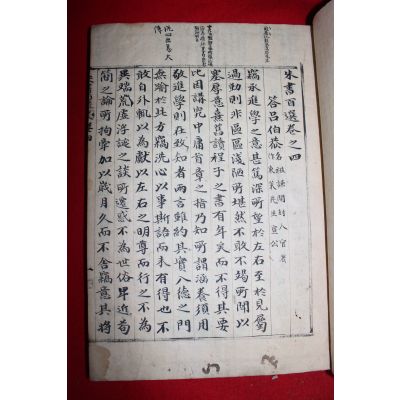 朱書百選卷之四
答呂伯恭 名祖謙開封人官著作東萊先生宣公
竊承進學之意甚篤深所望於左右至於見屬
過勤則非區區淺陋所堪然不敢不竭所聞以
塞厚意熹舊讀程子之書有年矣而不得其要
比因講究中庸首章之指乃知所謂涵養須用
敬進學則在致知者兩言雖約其實入德之門
無踰於此方竊洗心以事斯語而未有得也不
敢自外輒以為獻以左右之明尊而行之不為
異端荒虛浮誕之談所遷惑不為世俗卑近苟
簡之論所拘牽加以歲月久而不舍竊意其將
洗心出易大
傳